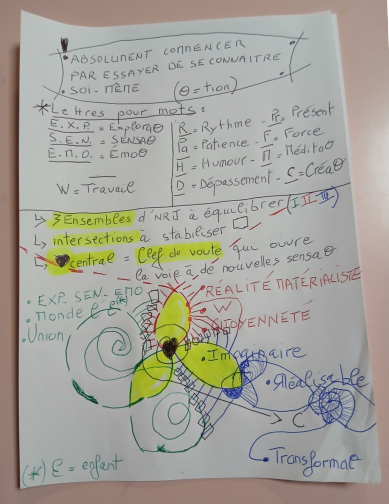 ! • ABSOLUMENT COMMENCER
PAR ESSAYER DE SE CONNAITRE
• SOI-MÊME (θ = tion)
* Lettres pour mots :
E.X.P. = Exploraθ
S.E.N. = SENSAθ
E.M.O. = Emoθ
W = Travail
R = Rythme - Pr = Présent
Pa = Patience - F = Force
H = Humour - M = Méditaθ
D = Dépassement - C = Créaθ
↳ 3 Ensembles d'NRJ à équilibrer (I-II-III)
↳ intersections à stabiliser □
↳ ♥ central = Clef de voute qui ouvre
la voie à de nouvelles sensaθ
• EXP. SEN-EMO
• Monde de l'E(*)
• Union
• RÉALITÉ MATÉRIALISTE
• W
• CITOYENNETÉ
• Imaginaire
• Réalisable
C
• Transformaθ
(*) E = enfant